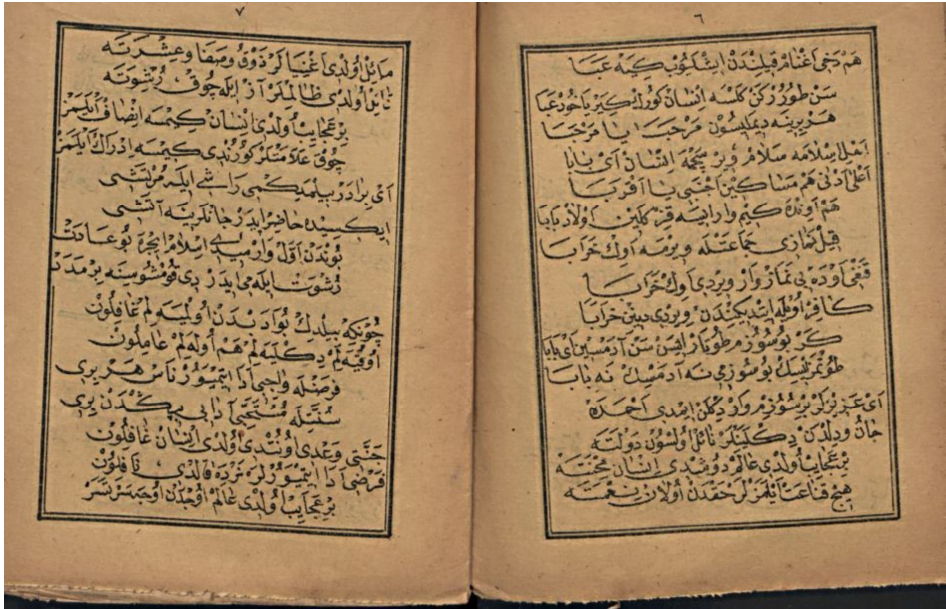 ٦
هَمْ دَخِى اَغْنَامْ قِيلِنْدَنْ اِيشْلَنُوبْ كِيَهْ عَبَا
سَنْ طُورُرْكَنْ كَلْسَهْ اِنْسَانْ كُورُكْ كِيرْ يَاخُودْ عَبَا
هَرْ بِرِينَهْ دِيمَلِيسُونْ مَرْحَبَا يَا مَرْحَبَا
اَهْلِ اِسْلَامَهْ سَلَامْ وِيرْ اِنْسَانْ اَىْ بَابَا
اَعْلَى اَدْنَى هَمْ مَسَاكِينْ اَجْنَبِى يَا اَقْرَبَا
هَمْ اَوِنْدَهْ كِيمْ وَارْ اَيْسَهْ قِزْ كَلِينْ اَوْلَادْ بَابَا
قِيلْ نَمَازِى جَمَاعَتْلَهْ وِيرْمَهْ اَوِكْ خَرَابَا
قَنْغِى اَوْدَهْ بِى نَمَازْ وَارْ وِيرْدِى اَوِكْ خَرَابَا
كَافِرْ اُويْلَهْ اِيتْدِيكِنْدَنْ وِيرْدِى دِينِنْ خَرَابَا
كَرْ بُو سُوزُمْ طُوتَارْ اِيسَنْ سَنْ آدَمْسِينْ اَىْ بَابَا
طُوتْمَزْ اِيسَكْ بُو سُوزُمِى نَهْ آدَمْسِكْ نَهْ بَابَا
اَىْ عَزِيزْلَرْ بِرْ سُوزُمْ وَارْ دِكْلَنْ اِيمْدِى اَحْمَدَهْ
جَانْ وَدِلْدَنْ دِكْلَيَنْلَرْ نَائِلْ اُولْسُونْ دَوْلَتَهْ
بِرْ عَجَايِبْ اُولْدِى عَالَمْ دُوشْدِى اِنْسَانْ مِحْنَتَهْ
هِيچْ قَنَاعَتْ اَيْلَمَزْلَرْ حَقْدَنْ اُولَانْ نِعْمَتَهْ
٧
مَائِلْ اُولْدِى اَغْنِيَالَرْ ذَوْقُ وصَفَا وعِشْرَتَهْ
نَائِلْ اُولْدِى ظَالِمْلَرْ آزْ اِيلَهْ چُوقْ رُشْوَتَهْ
بِرْ عَجَايِبْ اُولْدِى اِنْسَانْ كِيمْسَهْ اِنْصَافْ اَيْلَمَزْ
چُوقْ عَلَامَتْلَرْ كُورُنْدِى كِيمْسَهْ اِدْرَاكْ اَيْلَمَزْ
اَىْ بِرَادَرْ بِيلْمَدِكْمِى رَاشِى اِيلَهْ مُرْتَشِى
اِيكِيسِيدَهْ حَاضِرْ اِيدَرْ جَانْلَرِينَهْ آتَشِى
بُونْدَنْ اَوَّلْ وَارْمِيدِى اِسْلَامْ اِيچْرَهْ بُو عَادَتْ
رُشْوَتْ اِيلَهْ مِى اِيدَرْدِى قُومْشُوسِنَهْ بِرْ مَدَدْ
چُونْكِهْ بِيلْدِكْ بُو اَدَبْدَنْ اُولْمِيَهْلِمْ غَافِلُونْ
اُوقُيَهْلِمْ دِكْلِيَهْلِمْ هَمْ اُولَهْلِمْ عَامِلُونْ
فَرْضِلَهْ وَاجِبِى اَدَا اِيتْمِيُورْ نَاسْ هَرْ بِرِى
سُنَّتِلَهْ مُسْتَحَبِّى
حَقِّى وَعْدِى اُونُتْدِى اُولْدِى اِنْسَانْ غَافِلُونْ
فَرْضِى اَدَا اِيتْمِيُورْلَرْ نَرْدَهْ قَالْدِى نَافِلُونْ
بِرْ عَجَايِبْ اُولْدِى عَالَمْ اُوچْدَنْ اُوجَهْ سَرْبَسَرْ